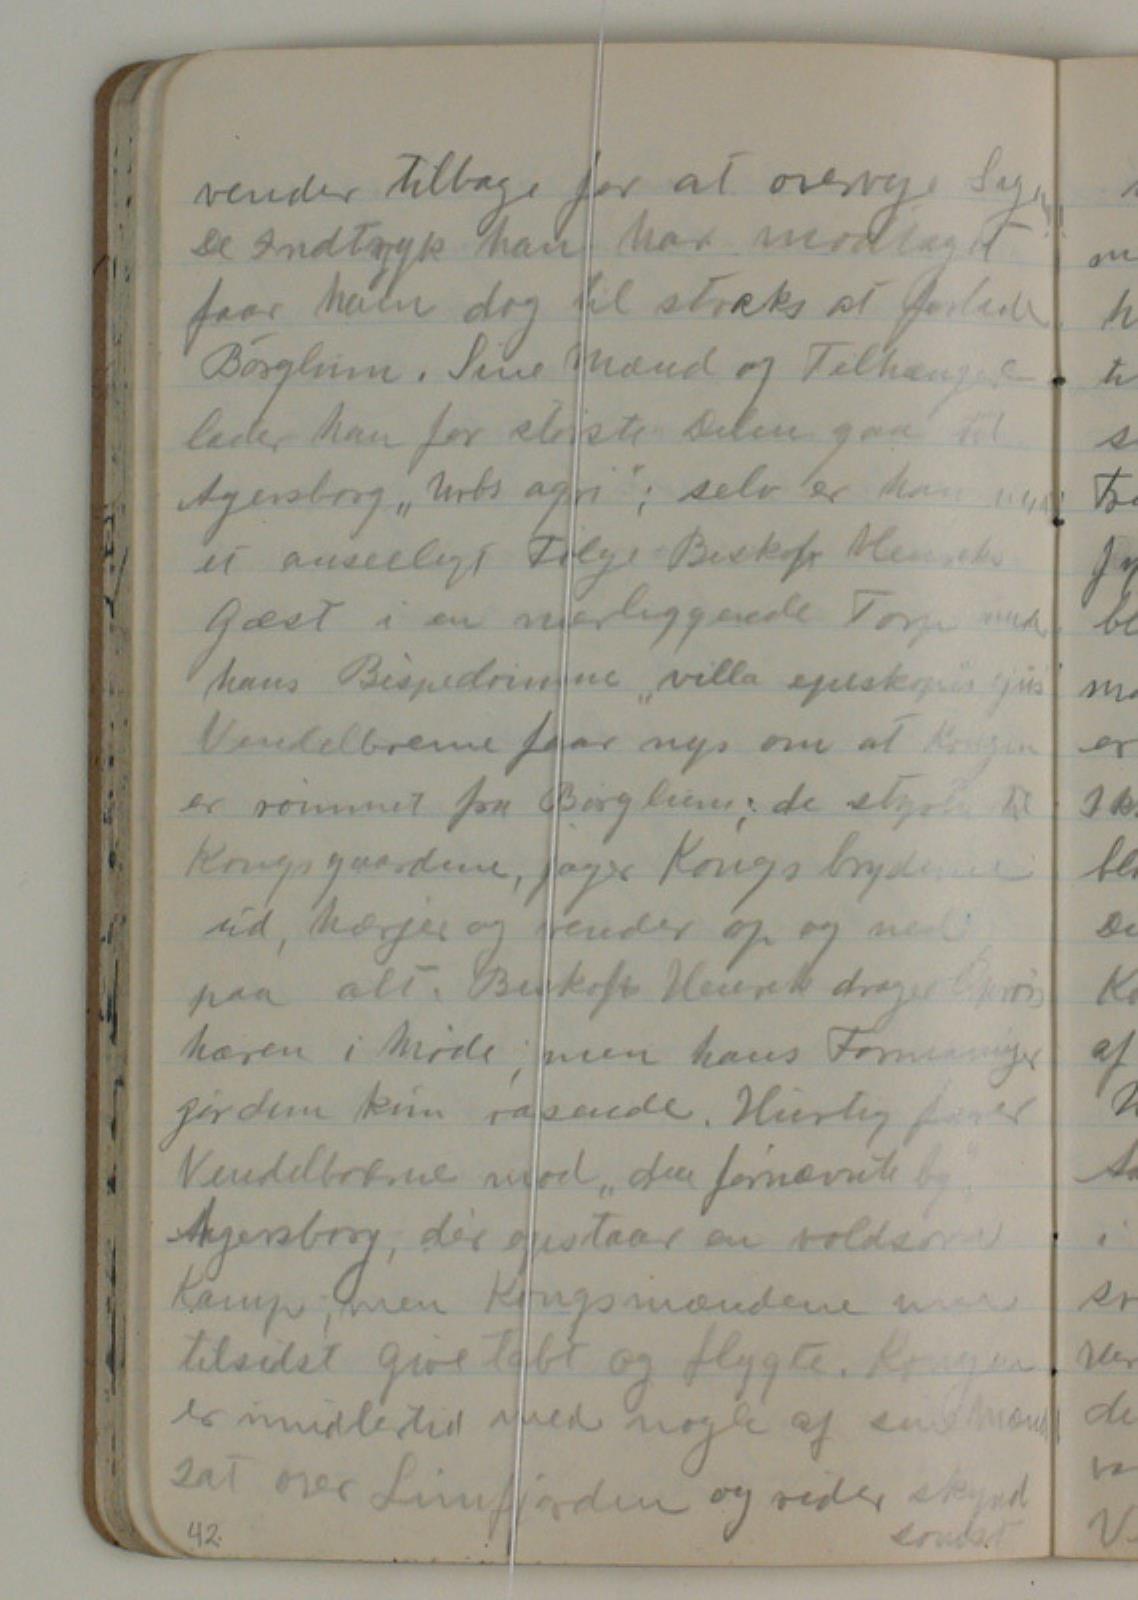 vender tilbage for at overveje Sagen
De Indtryk han har modtaget
faar ham dog til straks at forlade
Børglum. Sine Mænd og Tilhængere
lader han for største Delen gaa til
Agersborg „Urbs agri"; selv er han med
et anseeligt Følge Biskop Henriks
Gæst i en nærliggende Torp under
hans Bispedømme „villa episkopiis ejus"
Vendelboerne faar nys om at Kongen
er rømmet fra Børglum; de styrter til
Kongsgaardene, jager Kongsbryderne
ud, hærjer og vender op og ned
paa alt. Biskop Henrik drager Oprørs
hæren i Møde, men hans Formaninger
gør dem kun rasende. Hurtig farer
Vendelboerne mod „den førnævnte by"
Agersborg, dér opstaar en voldsom
Kamp, men Kongsmændene maa
tilsidst give tabt og flygte. Kongen
er imidlertid med nogle af sine Mænd
sat over Limfjorden og rider skynd
somst
42.